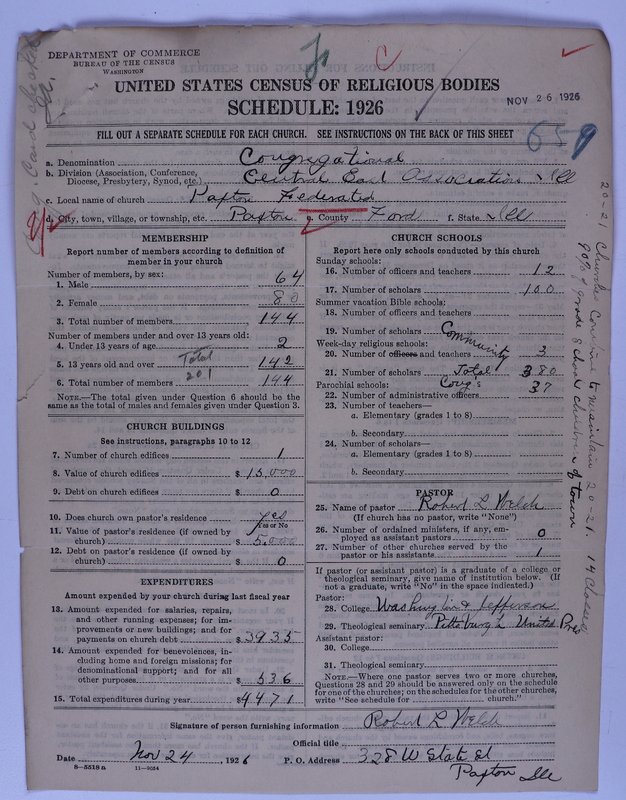 DEPARTMENT OF COMMERCE
BUREAU OF THE CENSUS
WASHINGTON
UNITED STATES CENSUS OF RELIGIOUS BODIES
SCHEDULE: 1926
NOV 26 1926
FILL OUT A SEPARATE SCHEDULE FOR EACH CHURCH. SEE INSTRUCTIONS ON THE BACK OF THIS SHEET
659
a. Denomination Congregational
b. Division (Association, Conference, Diocese, Presbytery, Synod, etc.) Central East Association Ill
c. Local name of church Paxton Federated
d. City, town, village, or township, etc. Paxton e. County Ford f. State Ill
MEMBERSHIP
Report number of members according to definition of
member in your church
Number of members, by sex:
1. Male 64
2. Female 80
3. Total number of members 144
Number of members under and over 13 years old:
4. Under 13 years of age 2
5. 13 years old and over Total 142
6. Total number of members 201 144
NOTE.—The total given under Question 6 should be the
same as the total of males and females given under Question 3.
CHURCH BUILDINGS
See instructions, paragraphs 10 to 12
7. Number of church edifices 1
8. Value of church edifices $ 15,000
9. Debt on church edifices $ 0
10. Does church own pastor's residence Yes
Yes or No
11. Value of pastor's residence (if owned by
church) $ 5,000
12. Debt on pastor's residence (if owned by
church) $ 0
EXPENDITURES
Amount expended by your church during last fiscal year
13. Amount expended for salaries, repairs,
and other running expenses; for im-
provements or new buildings; and for
payments on church debt $ 3935
14. Amount expended for benevolences, in-
cluding home and foreign missions; for
denominational support; and for all
other purposes $ 536
15. Total expenditures during year $ 4471
CHURCH SCHOOLS
Report here only schools conducted by this church
Sunday schools:
16. Number of officers and teachers 12
17. Number of scholars 100
Summer vacation Bible schools:
18. Number of officers and teachers
19. Number of scholars Community
Week-day religious schools:
20. Number of officers and teachers 3
21. Number of scholars Total 380
Parochial schools: Cong's 37
22. Number of administrative officers
23. Number of teachers—
a. Elementary (grades 1 to 8)
b. Secondary
24. Number of scholars—
a. Elementary (grades 1 to 8)
b. Secondary
PASTOR
25. Name of pastor Robert L Welch
(If church has no pastor, write "None")
26. Number of ordained ministers, if any, em-
ployed as assistant pastors 0
27. Number of other churches served by the
pastor or his assistants 1
If pastor (or assistant pastor) is a graduate of a college or
theological seminary, give name of institution below. (If
not a graduate, write "No" in the space indicated.)
Pastor:
28. College Washington & Jefferson
29. Theological seminary Pittsburgh United Pres
Assistant pastor:
30. College
31. Theological seminary
NOTE.—Where one pastor serves two or more churches,
Questions 28 and 29 should be answered only on the schedule
for one of the churches; on the schedules for the other churches,
write "See schedule for church."
20-21 Churches Combine to maintain 20-21. 14 Classes
90% of grade school children of town
Signature of person furnishing information Robert L Welch
Official title
Date Nov 24, 1926 P. O. Address 328 W State St
Paxton Ill
8—5518 a 11—9034